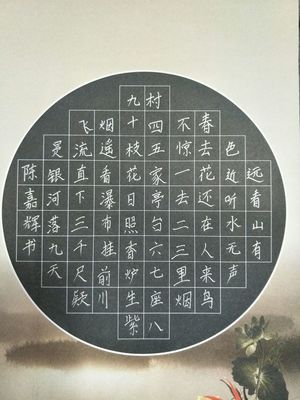 远看山有
色近听水无声
春去花还在人来鸟
不惊一去二三里烟
村四五家亭台六七座八
九十枝花日照香炉生紫
烟遥看瀑布挂前川
飞流直下三千尺疑
是银河落九天
陈嘉辉书